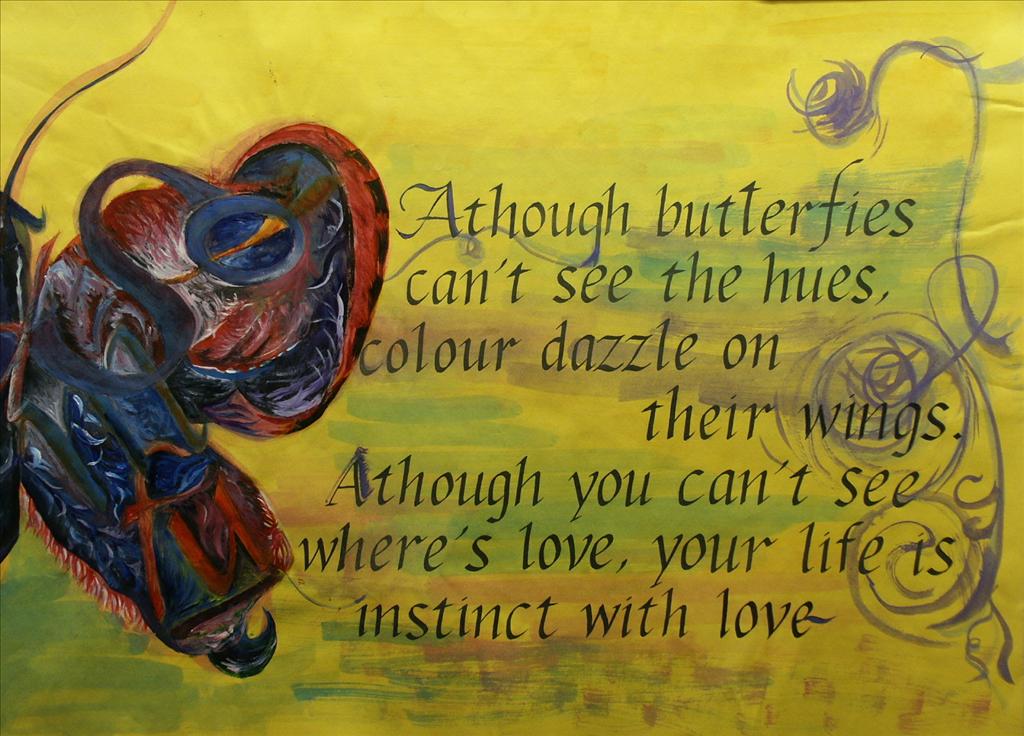 Athough butterfies
can't see the hues,
colour dazzle on
their wings.
Athough you can't see
where's love, your life is
instinct with love~